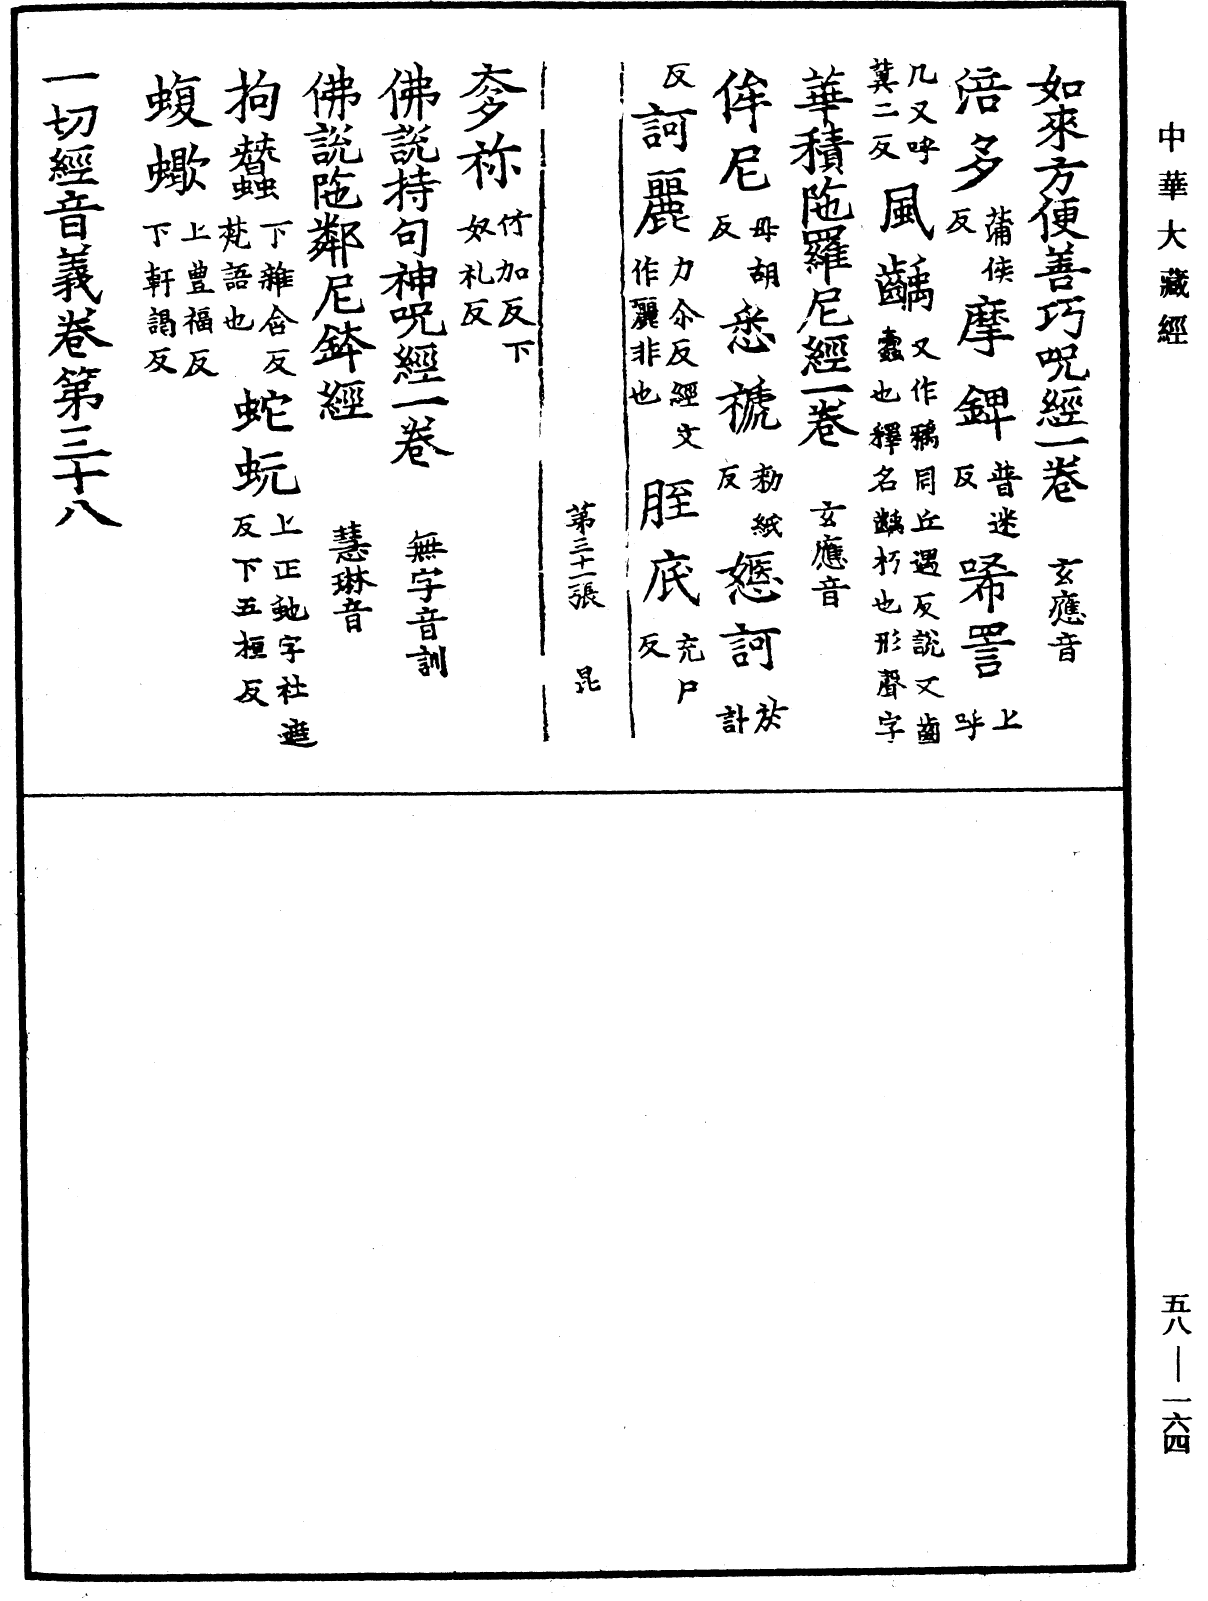 中華大藏經
如來方便善巧呪經一卷 玄應音
涪多 蒲侯反 摩錍 普迷反 唏詈 上呼
几又呼冀二反 風齲 又作㾞同丘遇反說文齒蠹也釋名齲朽也形聲字
華積陁羅尼經一卷 玄應音
侔尼 母胡反 悉褫 勑紙反 慝訶 於計
反 訶麗 力尒反經文作麗非也 胵底 充尸反
第三十一張 昆
奓祢 竹加反下奴礼反
佛說持句神呪經一卷 無字音訓
佛說陁鄰尼鉢經 慧琳音
拘蠶 下雜含反梵語也 蛇蚖 上正虵字社遮反下五桓反
蝮蠍 上豊福反下軒謁反
一切經音義卷第三十八
五八—一六四